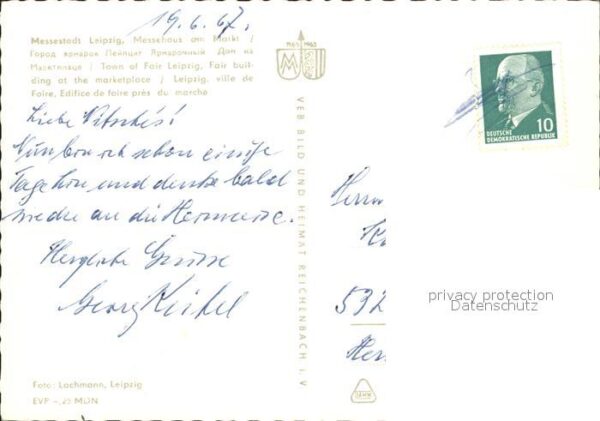 19.6.67.
Messestadt Leipzig, Messehaus am Markt /
Город ярмарок Лейпциг Ярмарочный Дом на
Марктплаце / Town of Fair Leipzig, Fair buil-
ding at the marketplace / Leipzig, ville de
Foire, Edifice de foire près du marché
1165 1965
MM
Liebe Nitschés!
Nun bin ich schon einige
Tage hier und denke bald
wieder an die Heimreise.
Herzliche Grüsse
Georg Keitel
VEB BILD UND HEIMAT REICHENBACH I. V.
10
DEUTSCHE
DEMOKRATISCHE REPUBLIK
Herrn
592
privacy protection
Datenschutz
Her
Foto: Lachmann, Leipzig
EVP –,25 MDN